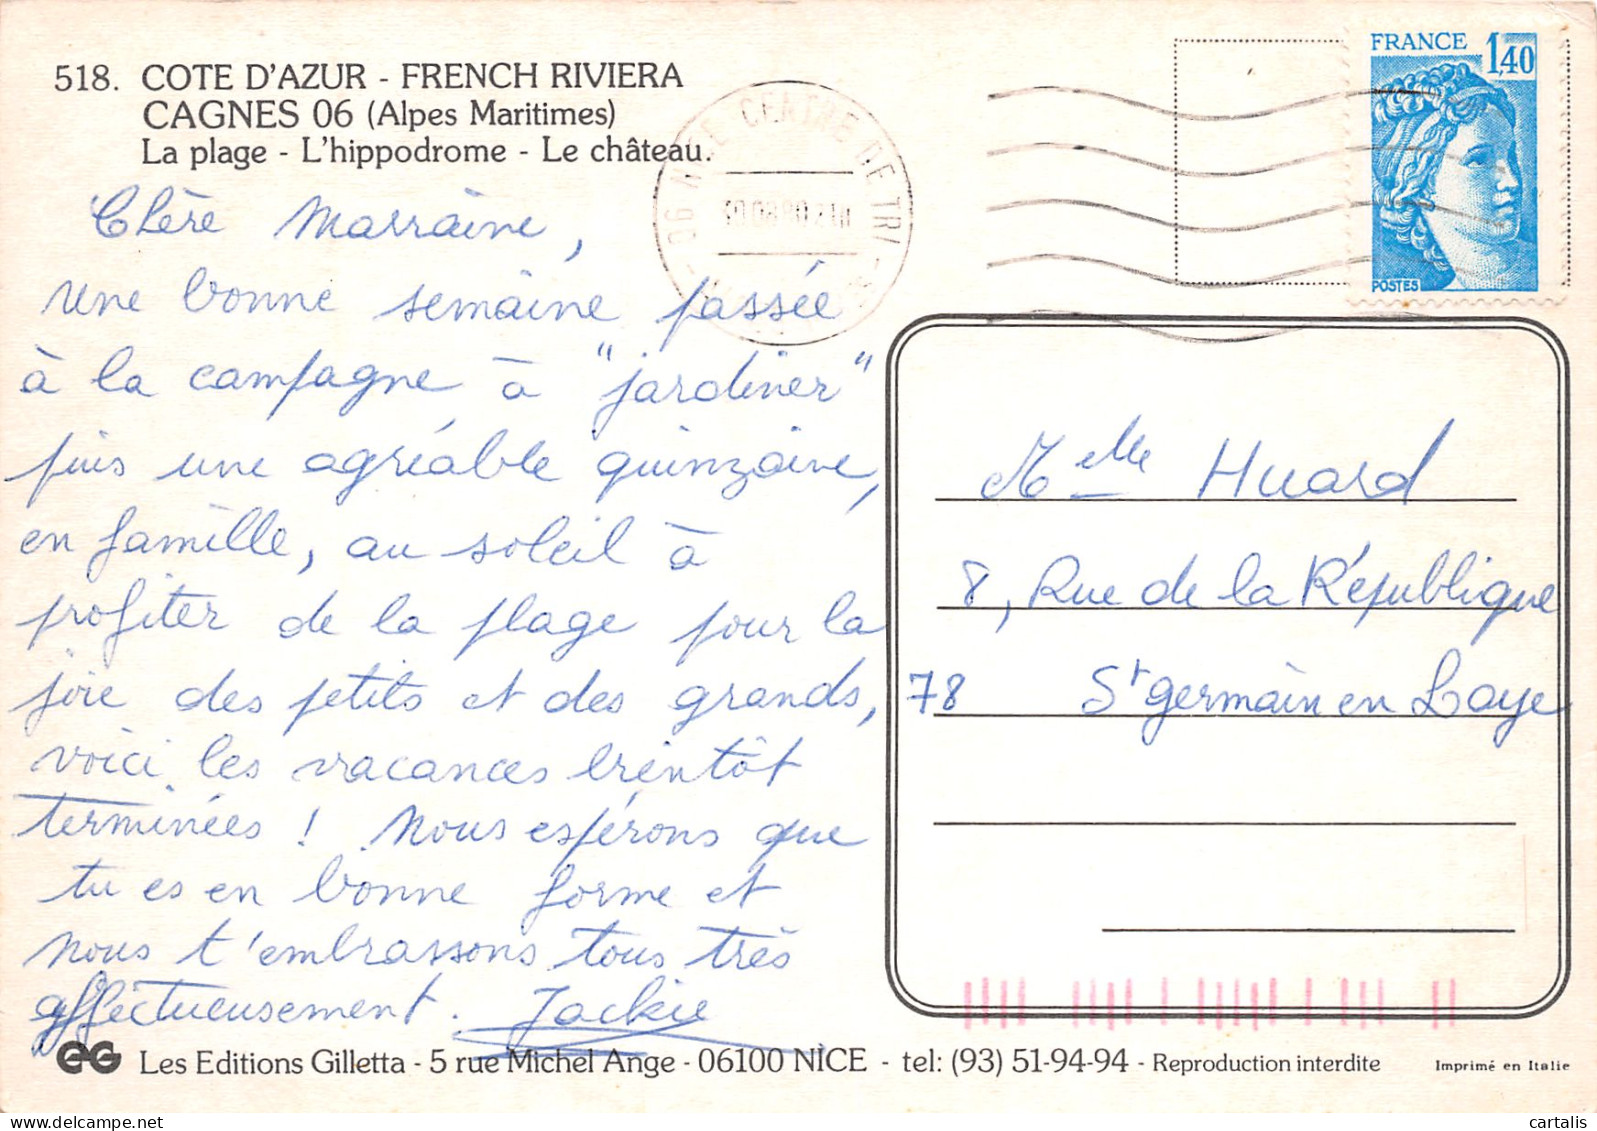 518. COTE D'AZUR - FRENCH RIVIERA
CAGNES 06 (Alpes Maritimes)
La plage - L'hippodrome - Le château.
FRANCE 1,40
POSTES
06 NICE CENTRE DE TRI
Chère Marraine,
une bonne semaine passée
à la campagne à "jardiner"
puis une agréable quinzaine,
en famille, au soleil à
profiter de la plage pour la
joie des petits et des grands,
voici les vacances bientôt
terminées ! Nous espérons que
tu es en bonne forme et
nous t'embrassons tous très
affectueusement. Jackie
Melle Huard
8, Rue de la République
78 St germain en Laye
EG Les Editions Gilletta - 5 rue Michel Ange - 06100 NICE - tel: (93) 51-94-94 - Reproduction interdite
Imprimé en Italie
cartalis